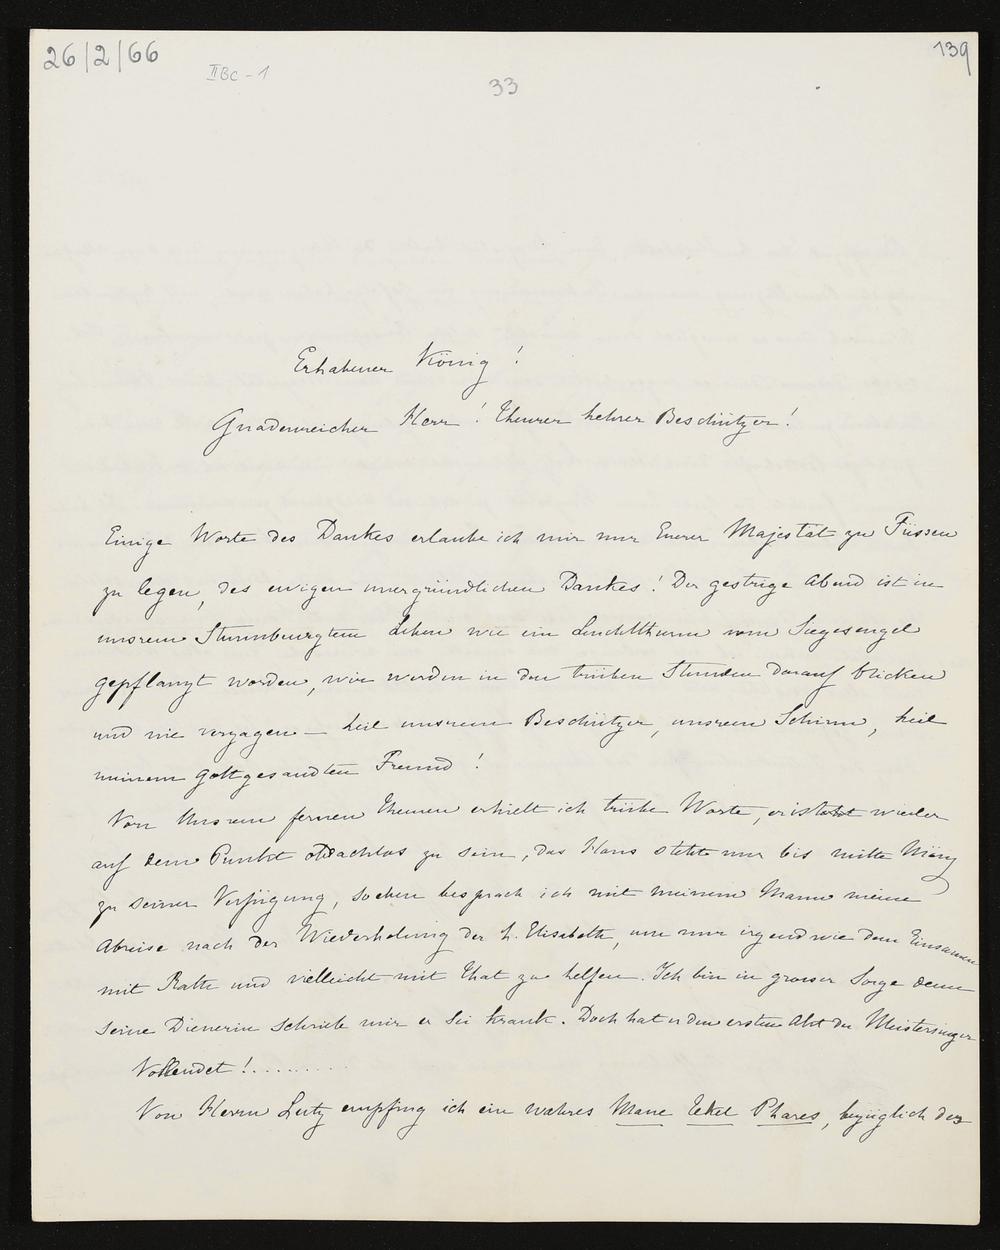 26/2/66
139
IIBc-1
33
Erhabener König!
Gnadenreicher Herr! Theurer hehrer Beschützer!
Einige Worte des Dankes erlaube ich mir nur Euerer Majestät zu Füssen
zu legen, des ewigen unergründlichen Dankes! Der gestrige Abend ist in
unsrem Sturmbewegtem Leben wie ein Leuchtthurm vom Siegesengel
gepflanzt worden, wir werden in den trüben Stunden darauf blicken
und nie verzagen – heil unsrem Beschützer, unsrem Schirm, heil
meinem gottgesandten Freund!
Von Unsrem fernen Theuren erhielt ich trübe Worte, er ist wieder
auf dem Punkt obdachlos zu sein, das Haus steht nur bis mitte März
zu seiner Verfügung, soeben besprach ich mit meinem Mann meine
Abreise nach der Wiederholung der h. Elisabeth, um nur irgendwie dem Einsamen
mit Rath und vielleicht mit That zu helfen. Ich bin in grosser Sorge denn
seine Dienerin schrieb mir er sei krank. Doch hat er den ersten Akt der Meistersinger
Vollendet!.........
Von Herrn Lutz empfing ich ein wahres Mane Tekel Phares, bezüglich des